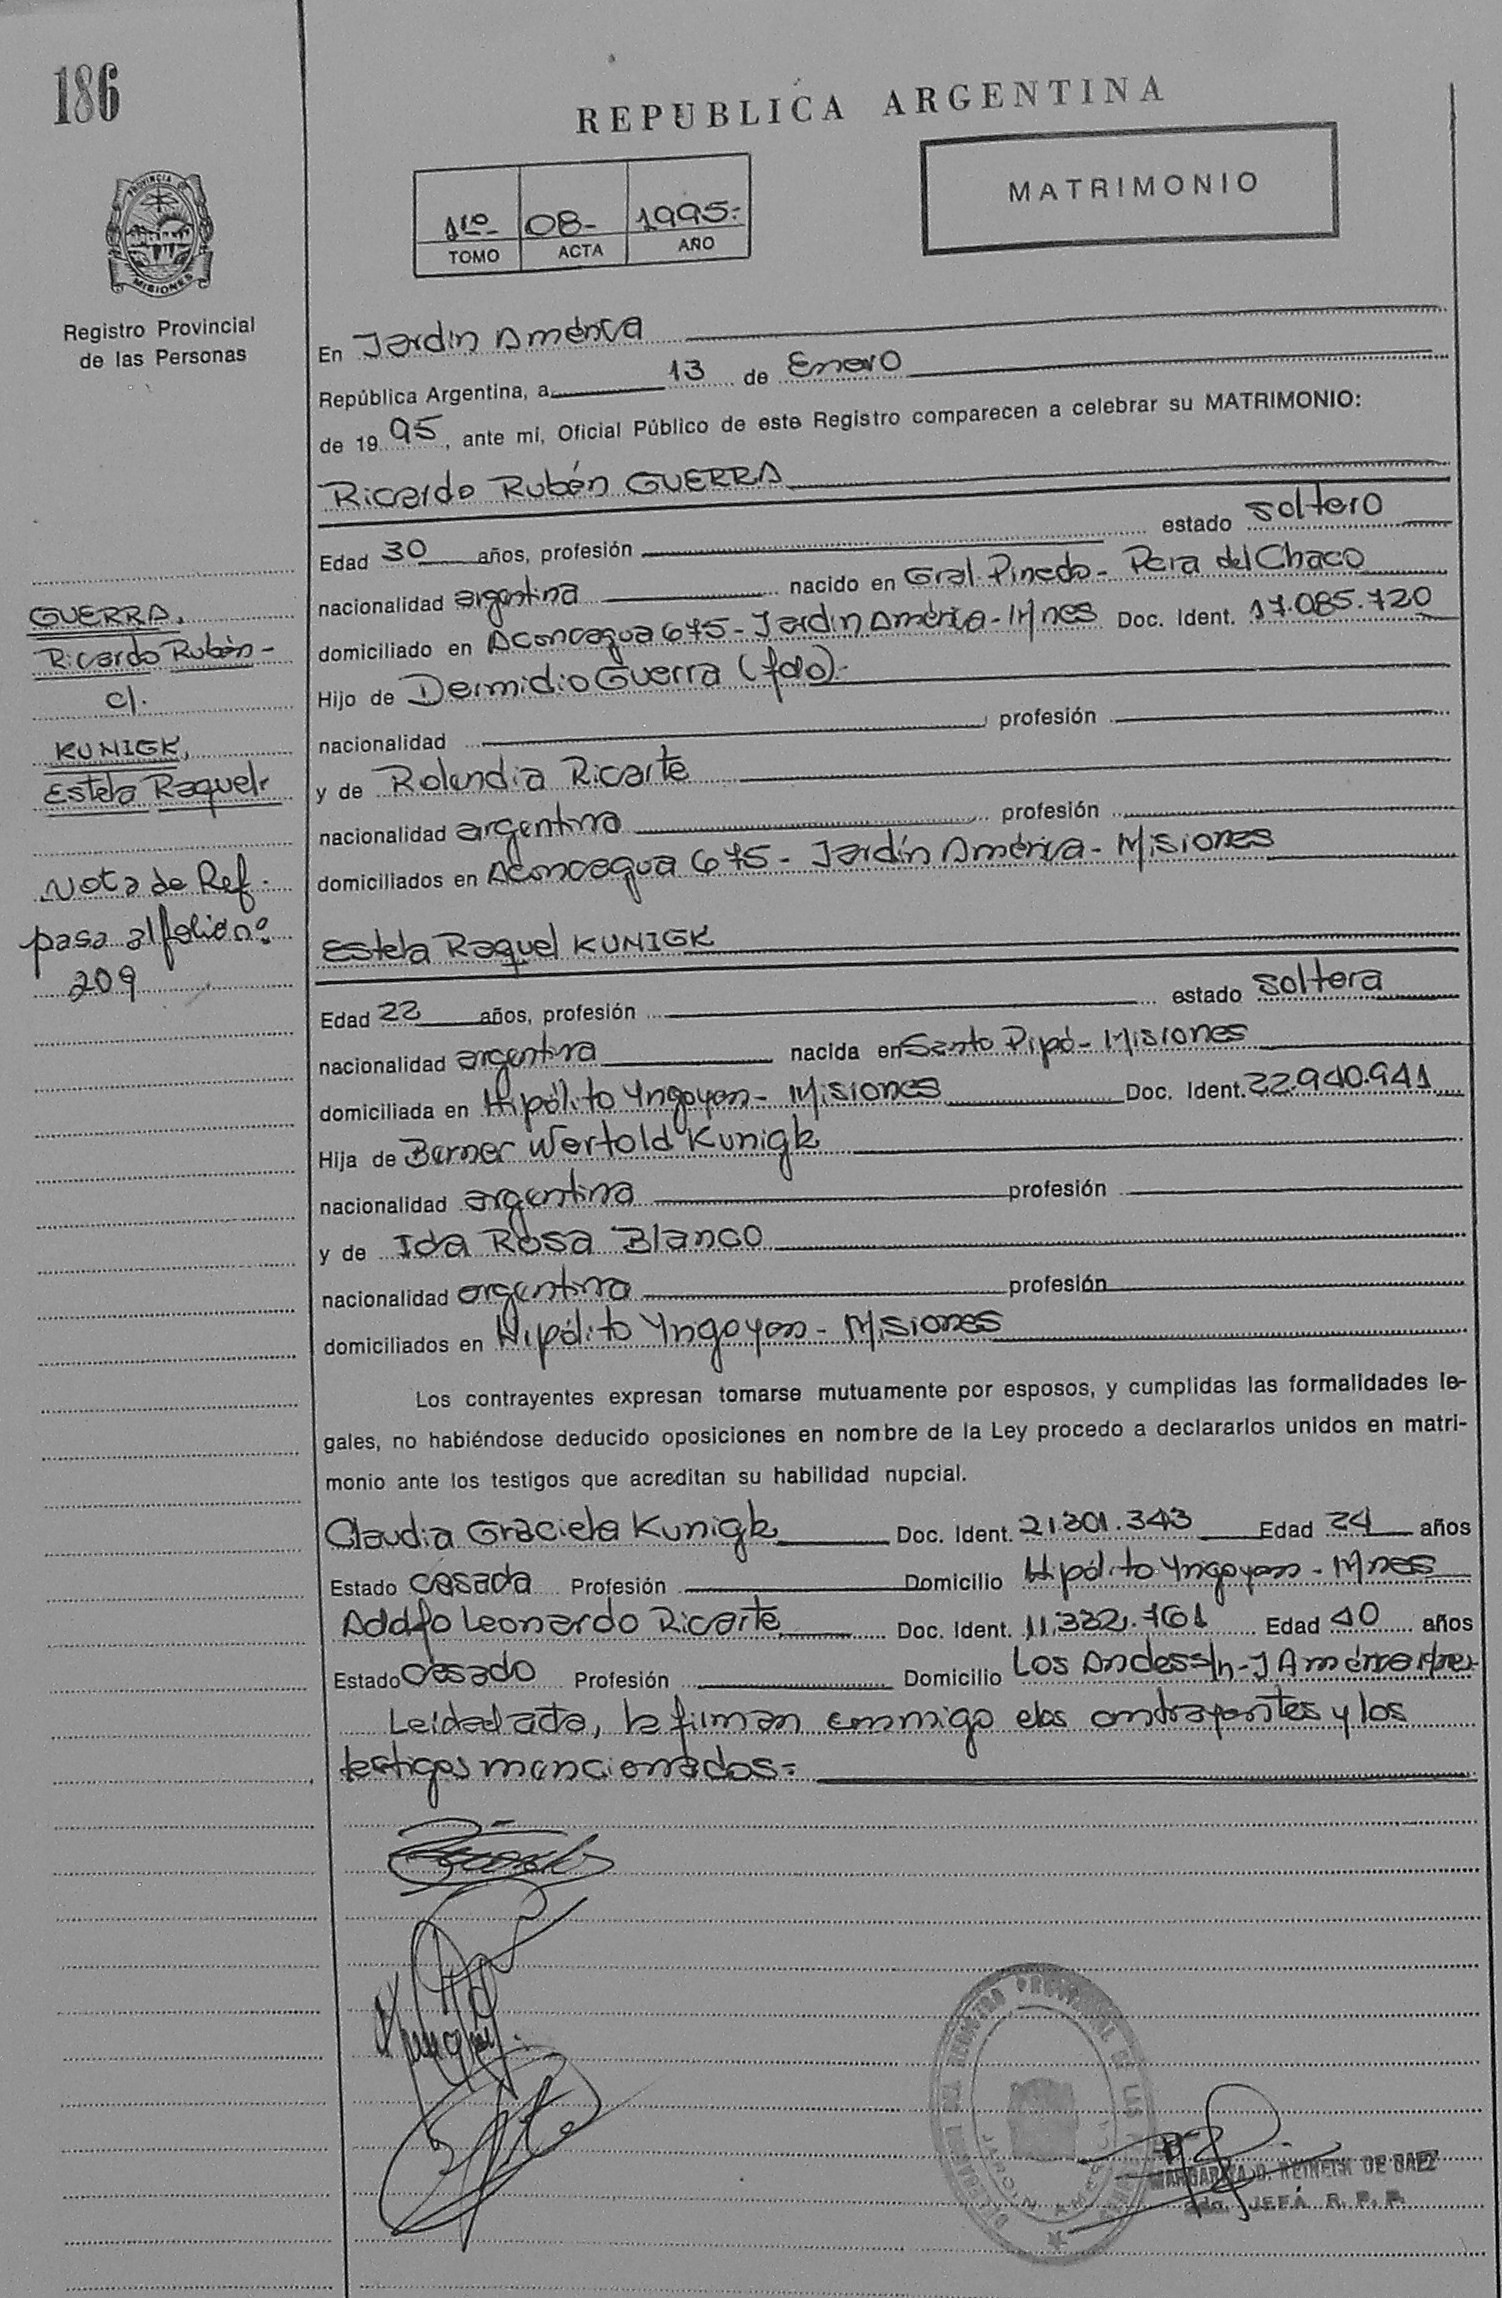 186
REPUBLICA ARGENTINA
PROVINCIA DE
MISIONES
Registro Provincial
de las Personas
1ro- 08- 1995-
TOMO ACTA AÑO
MATRIMONIO
En Jardín América
República Argentina, a 13 de Enero
de 1995, ante mí, Oficial Público de este Registro comparecen a celebrar su MATRIMONIO:
Ricardo Rubén GUERRA
Edad 30 años, profesión estado soltero
nacionalidad argentina nacido en Gral. Pinedo- Pcia del Chaco
domiciliado en Aconcagua 675- Jardín América- Mnes Doc. Ident. 17.085.720
Hijo de Dermidio Guerra (fdo)-
nacionalidad profesión
y de Rolendia Ricarte
nacionalidad argentina profesión
domiciliados en Aconcagua 675- Jardín América- Misiones
GUERRA,
Ricardo Rubén-
c/.
KUNIGK,
Estela Raquel-
Nota de Ref.
pasa al folio nº
209
Estela Raquel KUNIGK
Edad 22 años, profesión estado soltera
nacionalidad argentina nacida en Santo Pipó- Misiones
domiciliada en Hipólito Yrigoyen- Misiones Doc. Ident. 22.940.941
Hija de Berner Wertold Kunigk
nacionalidad argentina profesión
y de Ida Rosa Blanco
nacionalidad argentina profesión
domiciliados en Hipólito Yrigoyen- Misiones
Los contrayentes expresan tomarse mutuamente por esposos, y cumplidas las formalidades le-
gales, no habiéndose deducido oposiciones en nombre de la Ley procedo a declararlos unidos en matri-
monio ante los testigos que acreditan su habilidad nupcial.
Claudia Graciela Kunigk Doc. Ident. 21.301.343 Edad 24 años
Estado casada Profesión Domicilio Hipólito Yrigoyen- Mnes
Adolfo Leonardo Ricarte Doc. Ident. 11.332.761 Edad 40 años
Estado casado Profesión Domicilio Los Andes s/n- J América Mnes-
Leída el acta, la firman conmigo los contrayentes y los
testigos mencionados-
REGISTRO PROVINCIAL DE LAS
JARDIN AMERICA
MARGARITA REINECK DE BAEZ
JEFA R. P. P.